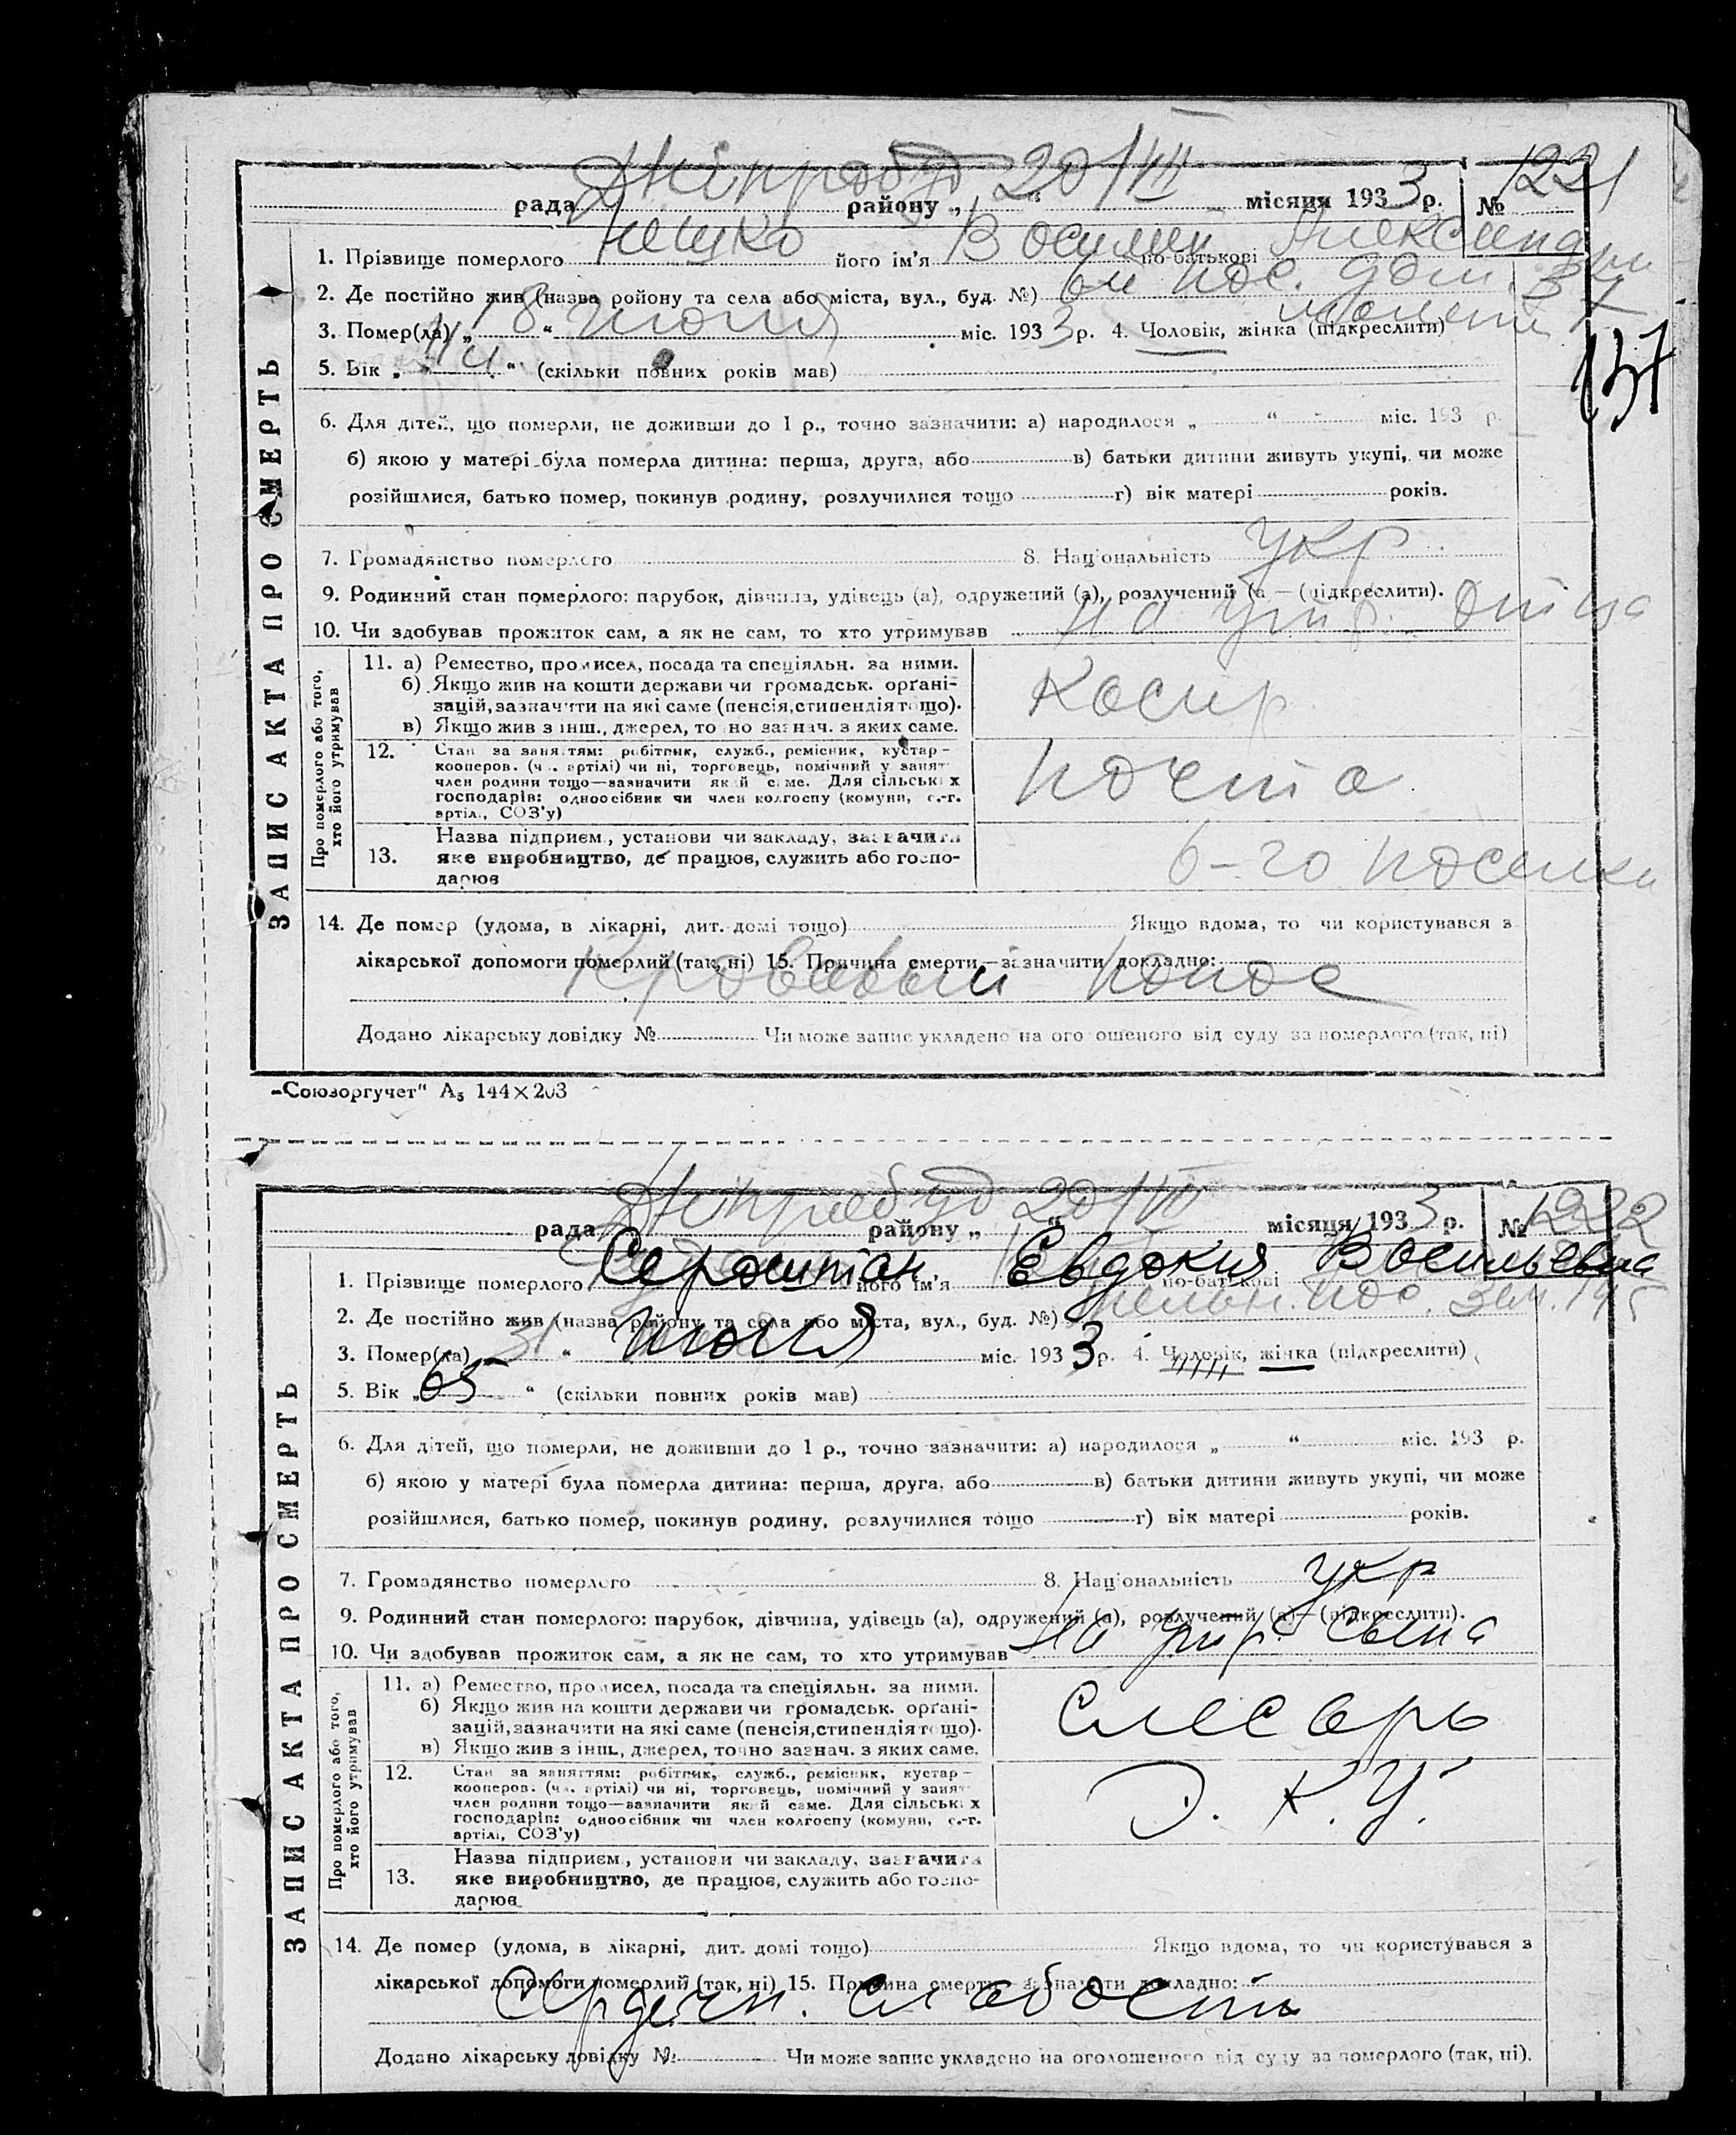 Дніпробуд 20/VII
рада района „ “ місяця 1933 р. № 1221
1. Прізвище померлого його ім'я Василий по-батькові
2. Де постійно жив (назва ройону та села або міста, вул., буд. №) 6й пос. дом. 37
3. Помер(ла) „18“ июля міс. 1933 р. 4. Чоловік, жінка (підкреслити)
137
5. Вік „ “ (скільки повних років мав)
6. Для дітей, що померли, не доживши до 1 р., точно зазначити: а) народилося „ “ міс. 193 р.
б) якою у матері була померла дитина: перша, друга, або в) батьки дитини живуть укупі, чи може
розійшлися, батько помер, покинув родину, розлучилися тощо г) вік матері років.
7. Громадянство померлого 8. Національність укр
9. Родинний стан померлого: парубок, дівчина, удівець (а), одружений (а), розлучений (а) — (підкреслити).
10. Чи здобував прожиток сам, а як не сам, то хто утримував на ижр. отца
ЗАПИС АКТА ПРО СМЕРТЬ
Про померлого або того, хто його утримував
11. а) Ремество, промисел, посада та спеціяльн. за ними.
б) Якщо жив на кошти держави чи громадськ. органі-
зацій, зазначити на які саме (пенсія, стипендія тощо).
в) Якщо жив з інш., джерел, точно зазнач. з яких саме.
Касир
12. Стан за заняттям: робітник, служб., ремісник, кустар-
кооперов. (чл. артілі) чи ні, торговець, помічний у занят.
член родини тощо—зазначити який саме. Для сільських
господарів: одноосібник чи член колгоспу (комуни, с.-г.
артіл., СОЗ'у)
почта
13. Назва підприєм., установи чи закладу, зазначити
яке виробництво, де працює, служить або госпо-
дарює
6-го поселка
14. Де помер (удома, в лікарні, дит. домі тощо) Якщо вдома, то чи користувався з
лікарської допомоги померлий (так, ні) 15. Причина смерти—зазначити докладно:
Кровавый понос
Додано лікарську довідку № Чи може запис укладено на оголошеного від суду за померлого (так, ні)
„Союзоргучет“ А5 144×203
Дніпробуд 20/VII
рада району „ “ місяця 1933 р. № 1222
1. Прізвище померлого Сероштан його ім'я Евдокия по-батькові Васильевна
2. Де постійно жив (назва району та села або міста, вул., буд. №) пос. зем. 195
3. Помер(ла) „ “ июля міс. 1933 р. 4. Чоловік, жінка (підкреслити)
5. Вік „65“ (скільки повних років мав)
6. Для дітей, що померли, не доживши до 1 р., точно зазначити: а) народилося „ “ міс. 193 р.
б) якою у матері була померла дитина: перша, друга, або в) батьки дитини живуть укупі, чи може
розійшлися, батько помер, покинув родину, розлучилися тощо г) вік матері років.
7. Громадянство померлого 8. Національність укр
9. Родинний стан померлого: парубок, дівчина, удівець (а), одружений (а), розлучений (а)—(підкреслити).
10. Чи здобував прожиток сам, а як не сам, то хто утримував на ижр. сына
ЗАПИС АКТА ПРО СМЕРТЬ
Про померлого або того, хто його утримував
11. а) Ремество, промисел, посада та спеціяльн. за ними.
б) Якщо жив на кошти держави чи громадськ. органі-
зацій, зазначити на які саме (пенсія, стипендія тощо).
в) Якщо жив з інш., джерел, точно зазнач. з яких саме.
Слесарь
12. Стан за заняттям: робітник, служб., ремісник, кустар-
кооперов. (чл. артілі) чи ні, торговець, помічний у занят.
член родини тощо—зазначити який саме. Для сільських
господарів: одноосібник чи член колгоспу (комуни, с.-г.
артіл., СОЗ'у)
Э. К. У.
13. Назва підприєм., установи чи закладу, зазначити
яке виробництво, де працює, служить або госпо-
дарює
14. Де помер (удома, в лікарні, дит. домі тощо) Якщо вдома, то чи користувався з
лікарської допомоги померлий (так, ні) 15. Причина смерти—зазначити докладно:
Сердечн. слабость
Додано лікарську довідку № Чи може запис укладено на оголошеного від суду за померлого (так, ні).